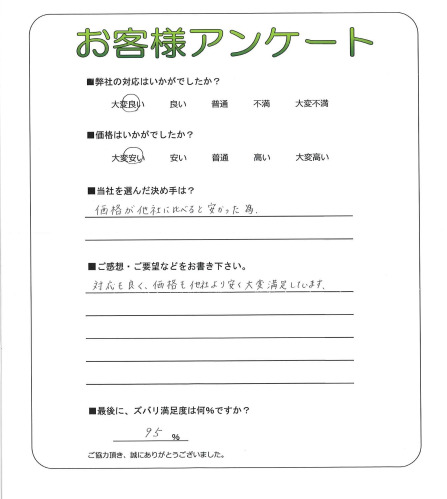 お客様アンケート
■弊社の対応はいかがでしたか？
大変良い 良い 普通 不満 大変不満
■価格はいかがでしたか？
大変安い 安い 普通 高い 大変高い
■当社を選んだ決め手は？
価格が他社に比べると安かった為.
■ご感想・ご要望などをお書き下さい。
対応も良く、価格も他社より安く大変満足しています.
■最後に、ズバリ満足度は何%ですか？
95 %
ご協力頂き、誠にありがとうございました。